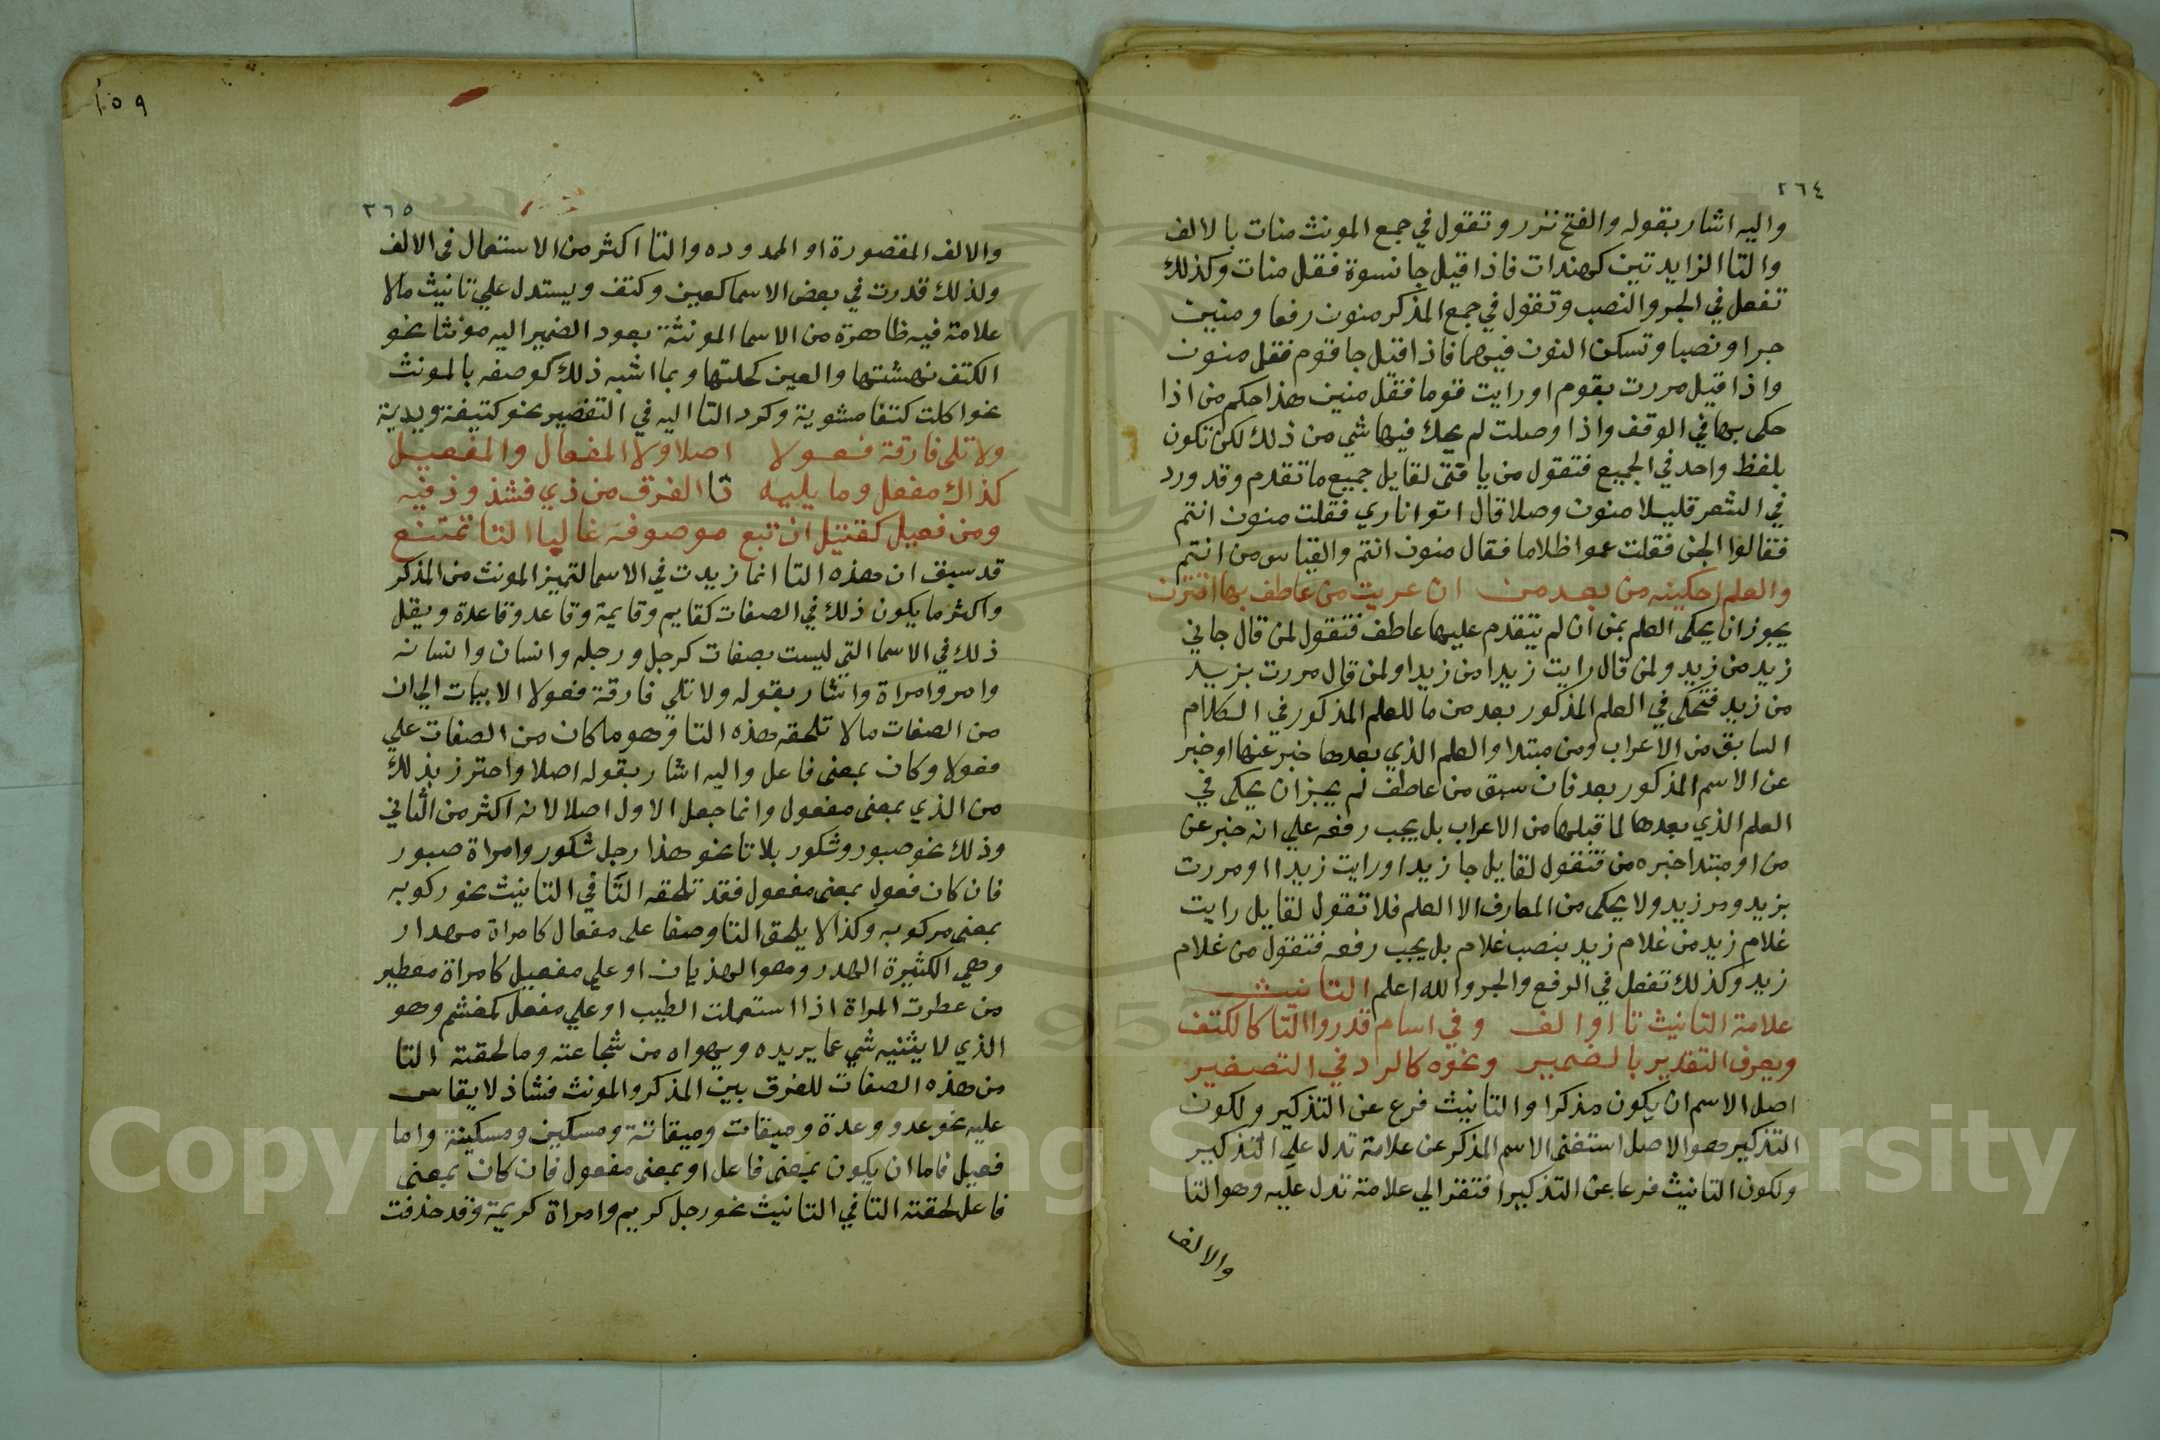 ٢٦٤
واليه اشار بقوله والفتح نزر وتقول في جمع المونث منات بالالف
والتا الزايدتين كهندات فاذا قيل جا نسوة فقل منات وكذلك
تفعل في الجر والنصب وتقول في جمع المذكر منون رفعا ومنين
جرا ونصبا وتسكن النون فيهما فاذا قيل جا قوم فقل منون
واذا قيل مررت بقوم او رايت قوما فقل منين هذا حكم من اذا
حكى بها في الوقف واذا وصلت لم يحك فيها شي من ذلك لكن تكون
بلفظ واحد في الجميع فتقول من يا فتى لقايل جميع ما تقدم وقد ورد
في الشعر قليلا منون وصلا قال اتوا ناري فقلت منون انتم
فقالوا الجن فقلت عموا ظلاما فقال منون انتم والقياس من انتم
والعلم احكينه من بعد من ان عريت من عاطف بها اقترن
يجوز ان يحكى العلم بمن ان لم يتقدم عليها عاطف فتقول لمن قال جاني
زيد من زيد ولمن قال رايت زيدا من زيدا ولمن قال مررت بزيد
من زيد فتحكى في العلم المذكور بعد من ما للعلم المذكور في الكلام
السابق من الاعراب ومن مبتدا والعلم الذي بعدها خبر عنها او خبر
عن الاسم المذكور بعد فان سبق من عاطف لم يجز ان يحكى في
العلم الذي بعدها لما قبلها من الاعراب بل يجب رفعه علي انه خبر عن
من او مبتدا خبره من فتقول لقايل جا زيد او رايت زيدا او مررت
بزيد ومن زيد ولا يحكى من المعارف الا العلم فلا تقول لقايل رايت
غلام زيد من غلام زيد بنصب غلام بل يجب رفعه فتقول من غلام
زيد وكذلك تفعل في الرفع والجر والله اعلم التانيث
علامة التانيث تا او الف وفي اسام قدروا التا كالكتف
ويعرف التقدير بالضمير ونحوه كالرد في التصغير
اصل الاسم ان يكون مذكرا والتانيث فرع عن التذكير ولكون
التذكير هو الاصل استغنى الاسم المذكر عن علامة تدل علي التذكير
ولكون التانيث فرعا عن التذكير افتقر الي علامة تدل عليه وهو التا
والالف
١٥٩
٢٦٥
والالف المقصورة او الممدوده والتا اكثر من الاستعمال في الالف
ولذلك قدرت في بعض الاسما كعين وكتف ويستدل علي تانيث مالا
علامة فيه ظاهرة من الاسما المونثة بعود الضمير اليه مونثا نحو
الكتف نهشتها والعين كحلتها وبما اشبه ذلك كوصفه بالمونث
نحو اكلت كتفا مشوية وكرد التا اليه في التصغير نحو كتيفة ويدية
ولا تلى فارقة فعولا اصلا ولا المفعال والمفعيل
كذاك مفعل وما يليه تا الفرق من ذي فشذوذ فيه
ومن فعيل كقتيل ان تبع موصوفه غالبا التا تمتنع
قد سبق ان هذه التا انما زيدت في الاسما لتميز المونث من المذكر
واكثر ما يكون ذلك في الصفات كقايم وقايمة وقاعد وقاعدة ويقل
ذلك في الاسما التي ليست بصفات كرجل ورجله وانسان وانسانه
وامر وامراة واشار بقوله ولا تلي فارقة فعولا الابيات الي ان
من الصفات مالا تلحقه هذه التا وهو ما كان من الصفات علي
فعولا وكان بمعنى فاعل واليه اشار بقوله اصلا واحترز بذلك
من الذي بمعنى مفعول وانما جعل الاول اصلا لانه اكثر من الثاني
وذلك نحو صبور وشكور بلا تا نحو هذا رجل شكور وامراة صبور
فان كان فعول بمعنى مفعول فقد تلحقه التا في التانيث نحو ركوبه
بمعنى مركوبه وكذا لا يلحق التا وصفا على مفعال كامراة مهدار
وهي الكثيرة الهدر وهو الهذيان او علي مفعيل كامراة معطير
من عطرت المراة اذا استعملت الطيب او علي مفعل كمغشم وهو
الذي لا يثنيه شي عما يريده ويهواه من شجاعته وما لحقته التا
من هذه الصفات للفرق بين المذكر والمونث فشاذ لا يقاس
عليه نحو عدو وعدوة وميقات وميقاتة ومسكين ومسكينة واما
فعيل فاما ان يكون بمعنى فاعل او بمعنى مفعول فان كان بمعنى
فاعل لحقته التا في التانيث نحو رجل كريم وامراة كريمة وقد حذفت
Copyright © King Saud University